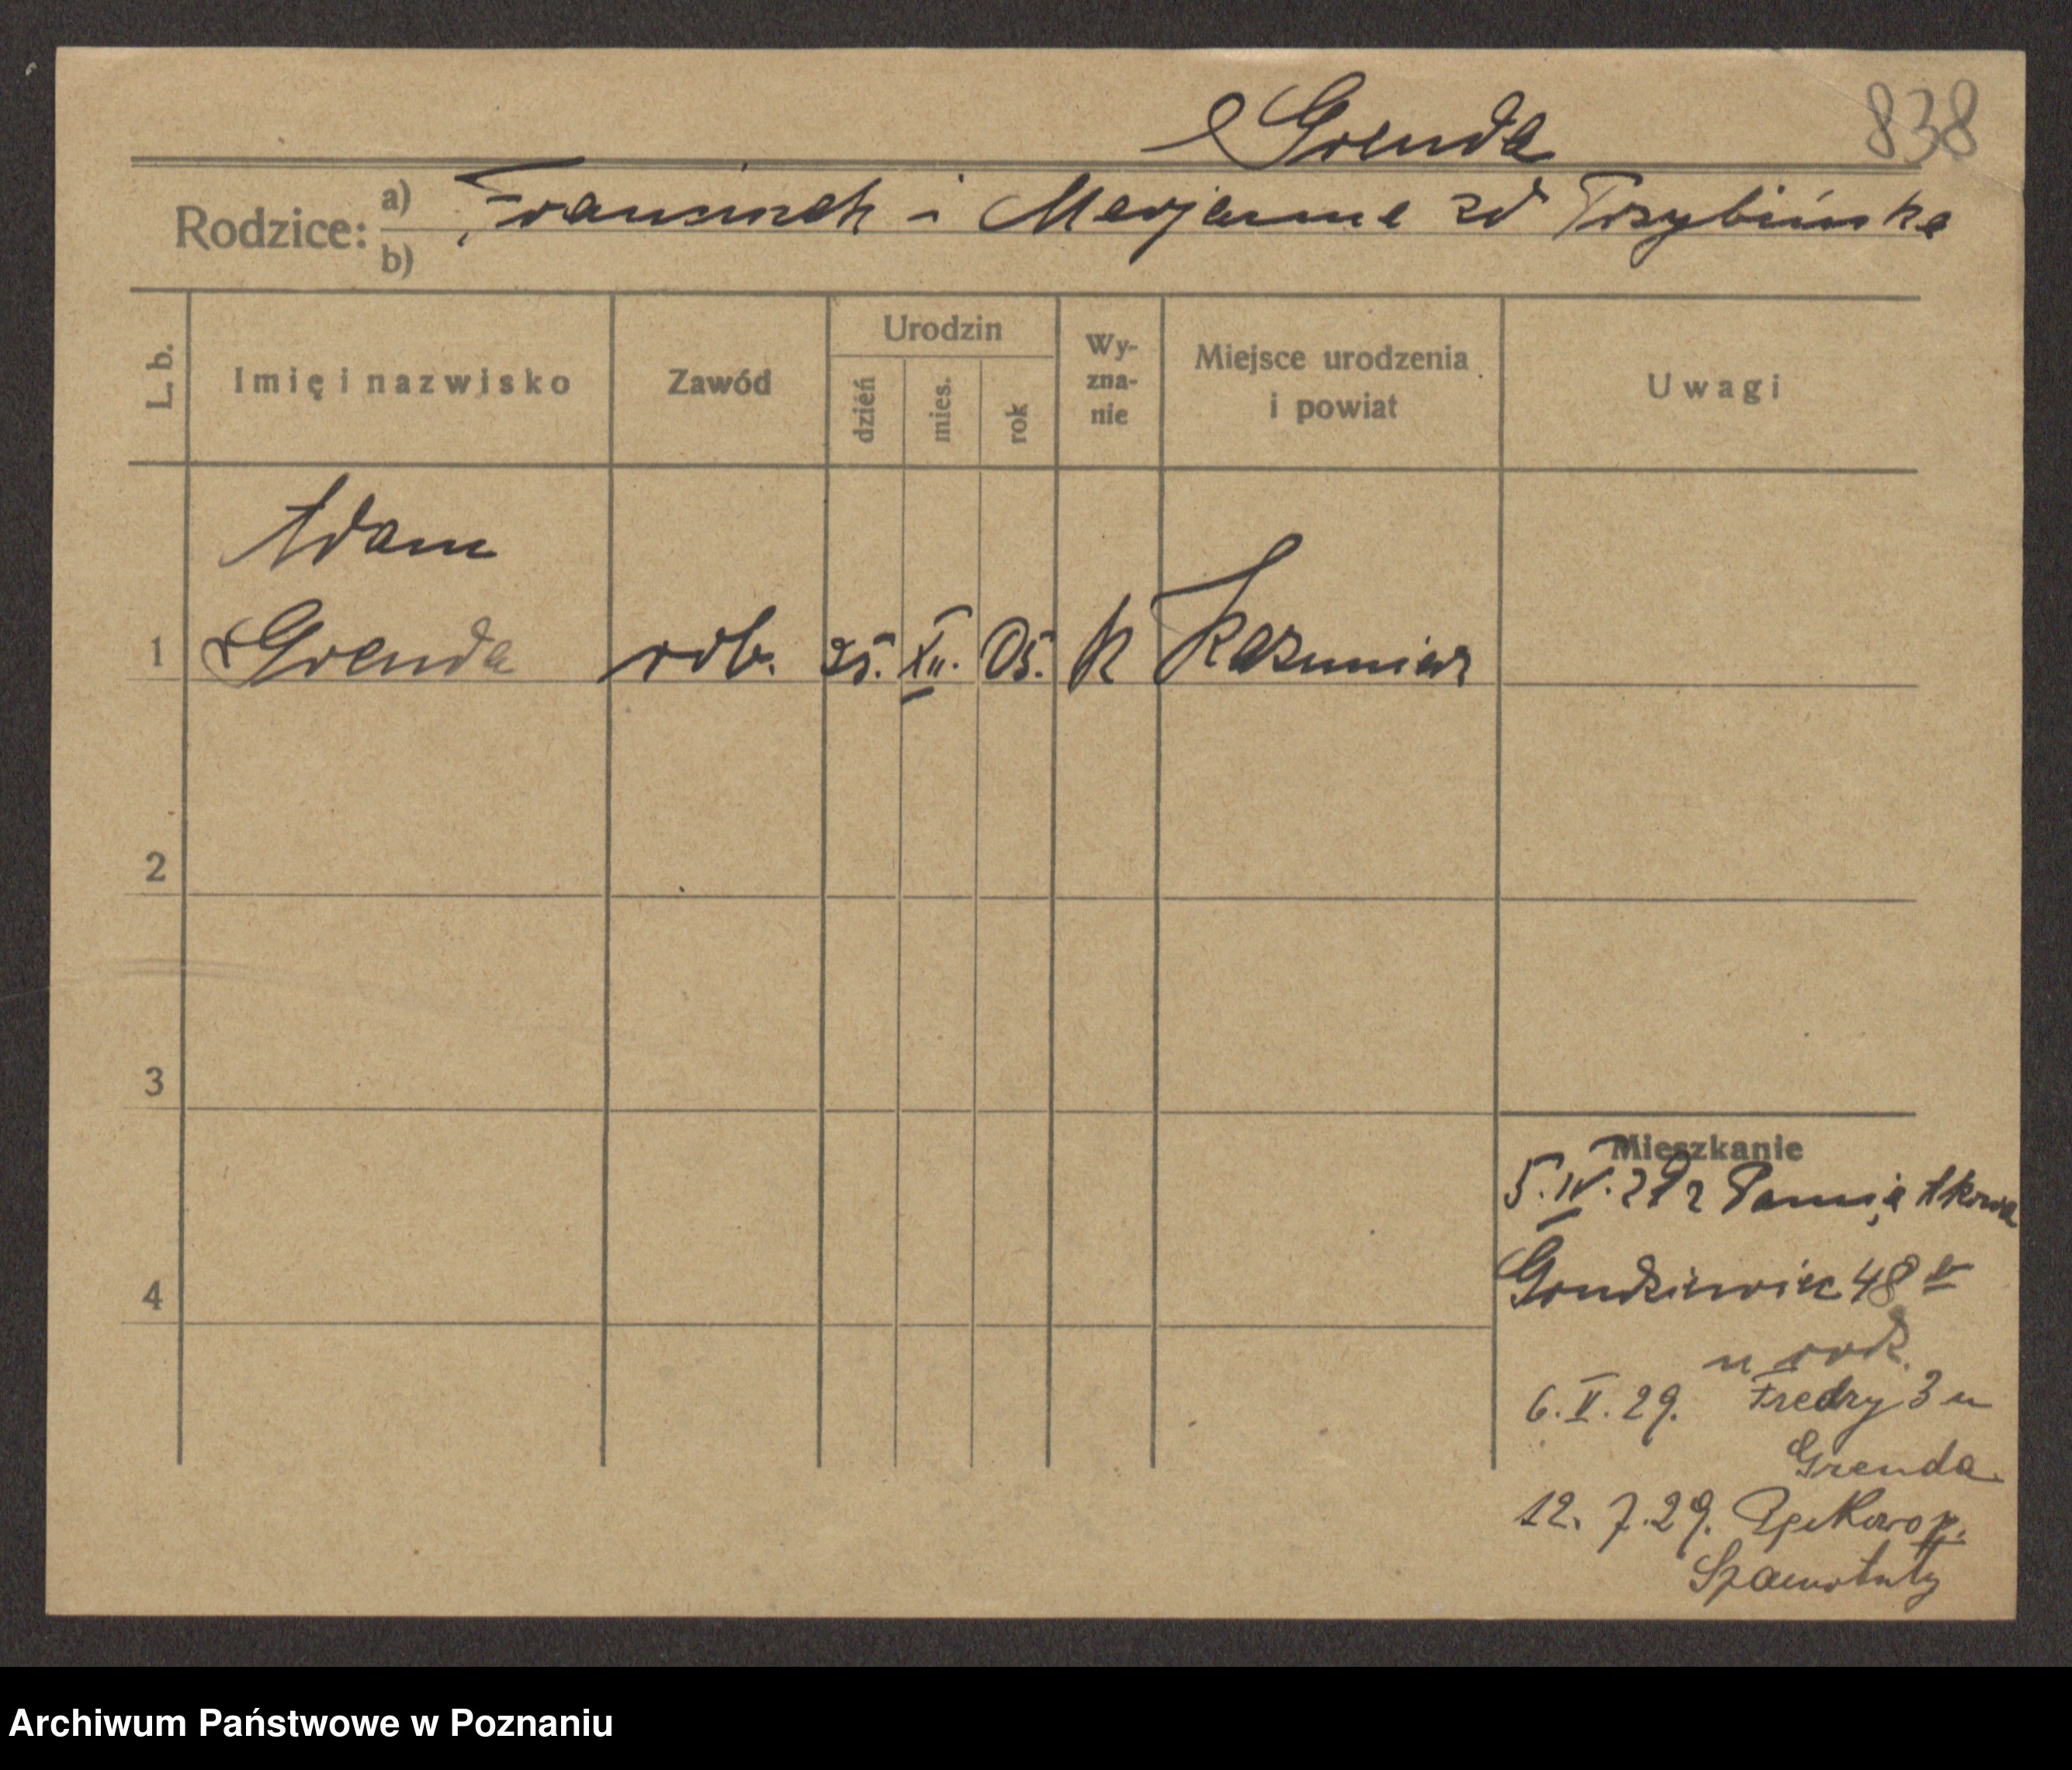 Grenda 838
Rodzice: a) Franciszek i Marjanna zd Przybińska
b)
L. b. Imię i nazwisko Zawód Urodzin dzień mies. rok Wyznanie Miejsce urodzenia i powiat Uwagi
Adam
1 Grenda rob. 25. XII. 05. k Kazmierz
2
3
Mieszkanie
5. IV. 27 z Pamiątkowa
4 Grudzieniec 48
u rodz.
6. V. 29. Fredry 3 u
Grenda
12. 7. 29. p.
Szamotuły
Archiwum Państwowe w Poznaniu